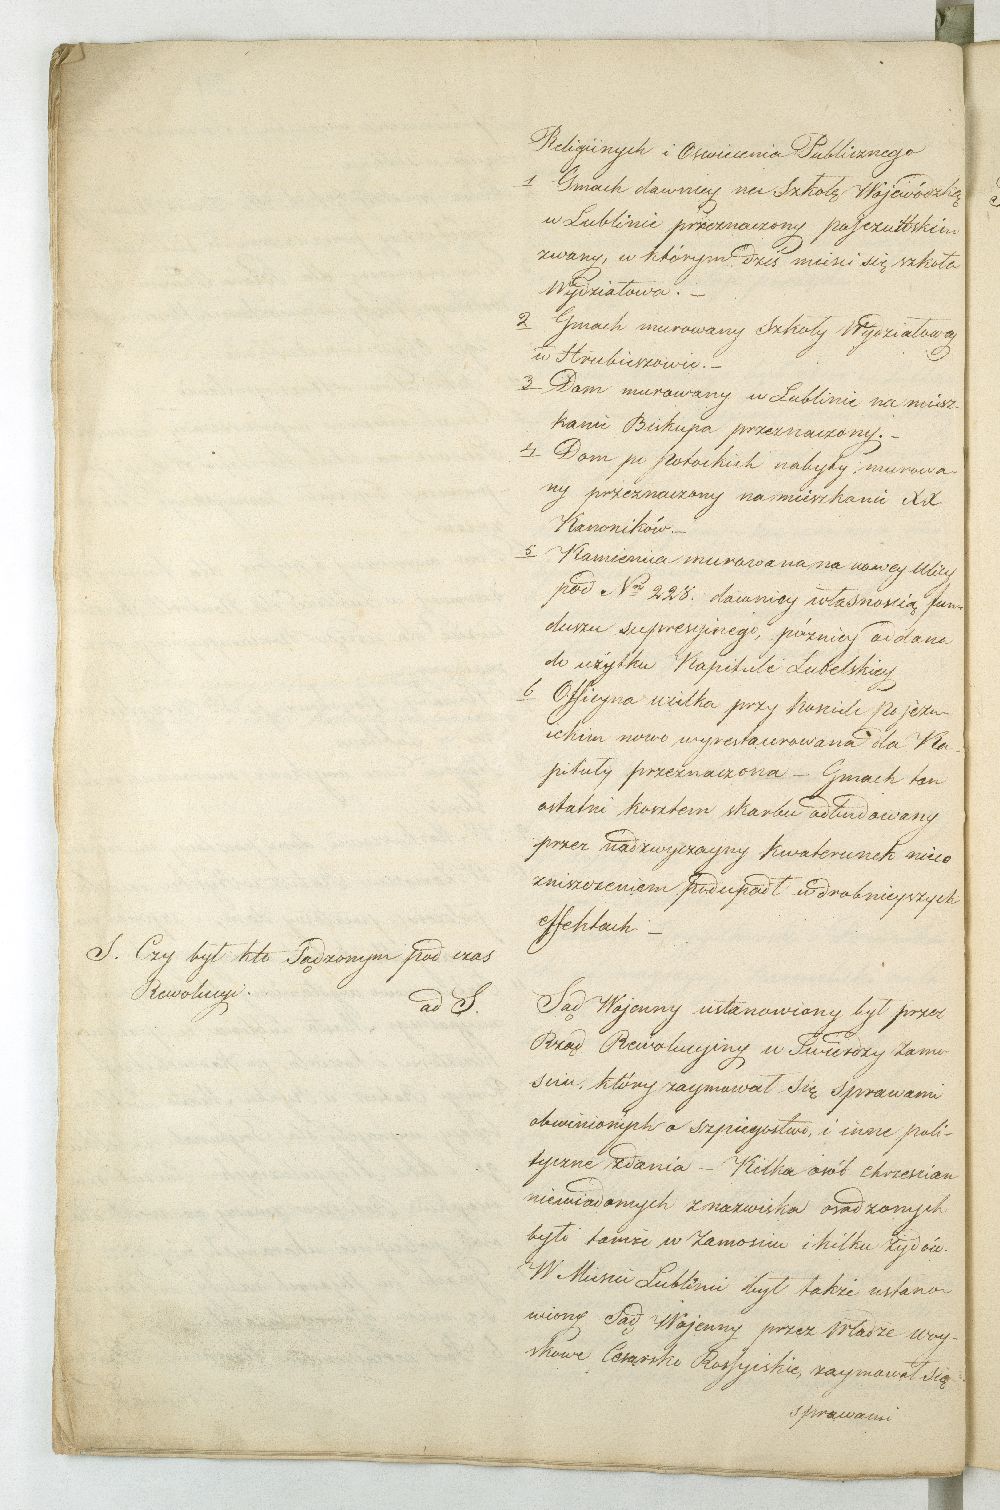 Religiinych i Oswiecenia Publicznego
1 Gmach dawniey na Szkołę Wojewódzką
w Lublinie przeznaczony pojezuitskim
zwany, w którym dziś mieści się szkoła
Wydziałowa. –
2 Gmach murowany Szkoły Wydziałowey
w Hrubieszowie. –
3 Dom murowany w Lublinie na miesz-
kanie Biskupa przeznaczony. –
4 Dom po Potockich nabyty, murowa-
ny przeznaczony na mieszkanie XX
Kanoników –
5 Kamienica murowana na nowey Ulicy
pod Nrm 228. dawniey własnością fun-
duszu supresyjnego, pózniey oddana
do użytku Kapitule Lubelskiey
6 Officyna wielka przy Kosciele po jezu-
ickim nowo wyrestaurowana dla Ka-
pituły przeznaczona – Gmach ten
ostatni kosztem skarbu odbudowany
przez nadzwyczayny kwaterunek nieco
zniszczeniem podupadł w drobnieyszych
effektach –
S. Czy był kto Sądzonym pod czas
Rewolucyi.
ad S.
Sąd Wojenny ustanowiony był przez
Rząd Rewolucyiny w Twierdzy Zamo-
sciu, który zaymował się sprawami
obwinionych o szpiegostwo, i inne poli-
tyczne zdania – Kilka osób chrzescian
niewiadomych z nazwiska osadzonych
byli tamże w Zamosciu i kilku żydów.
W Miescie Lublinie był także ustano-
wiony Sąd Wojenny przez Władze woy-
skowe Cesarsko Rossyiskie, zaymował się
sprawami